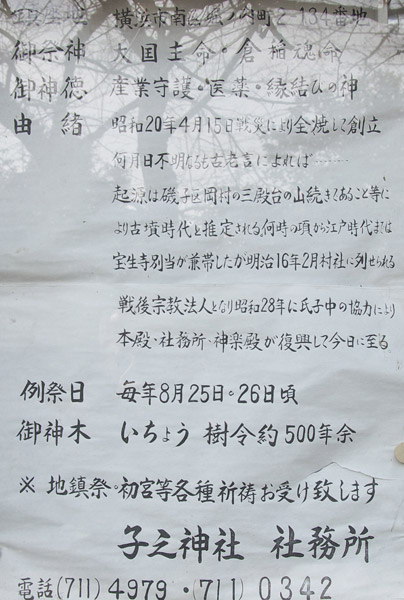 鎮座地 横浜市南区堀ノ内町2-134番地
御祭神 大国主命・倉稲魂命
御神徳 産業守護・医薬・縁結びの神
由緒 昭和20年4月15日戦災により全焼して創立
何月日不明なるも古老言によれば……
起源は磯子区岡村の三殿台の山続きであること等に
より古墳時代と推定される何時の頃から江戸時代までは
宝生寺別当が兼帯したが明治16年2月村社に列せられる
戦後宗教法人となり昭和28年に氏子中の協力により
本殿・社務所・神楽殿が復興して今日に至る
例祭日 毎年8月25日。26日頃
御神木 いちょう 樹令約500年余
※ 地鎮祭。初宮等各種祈祷お受け致します
子之神社 社務所
電話(711)4979・(711)0342